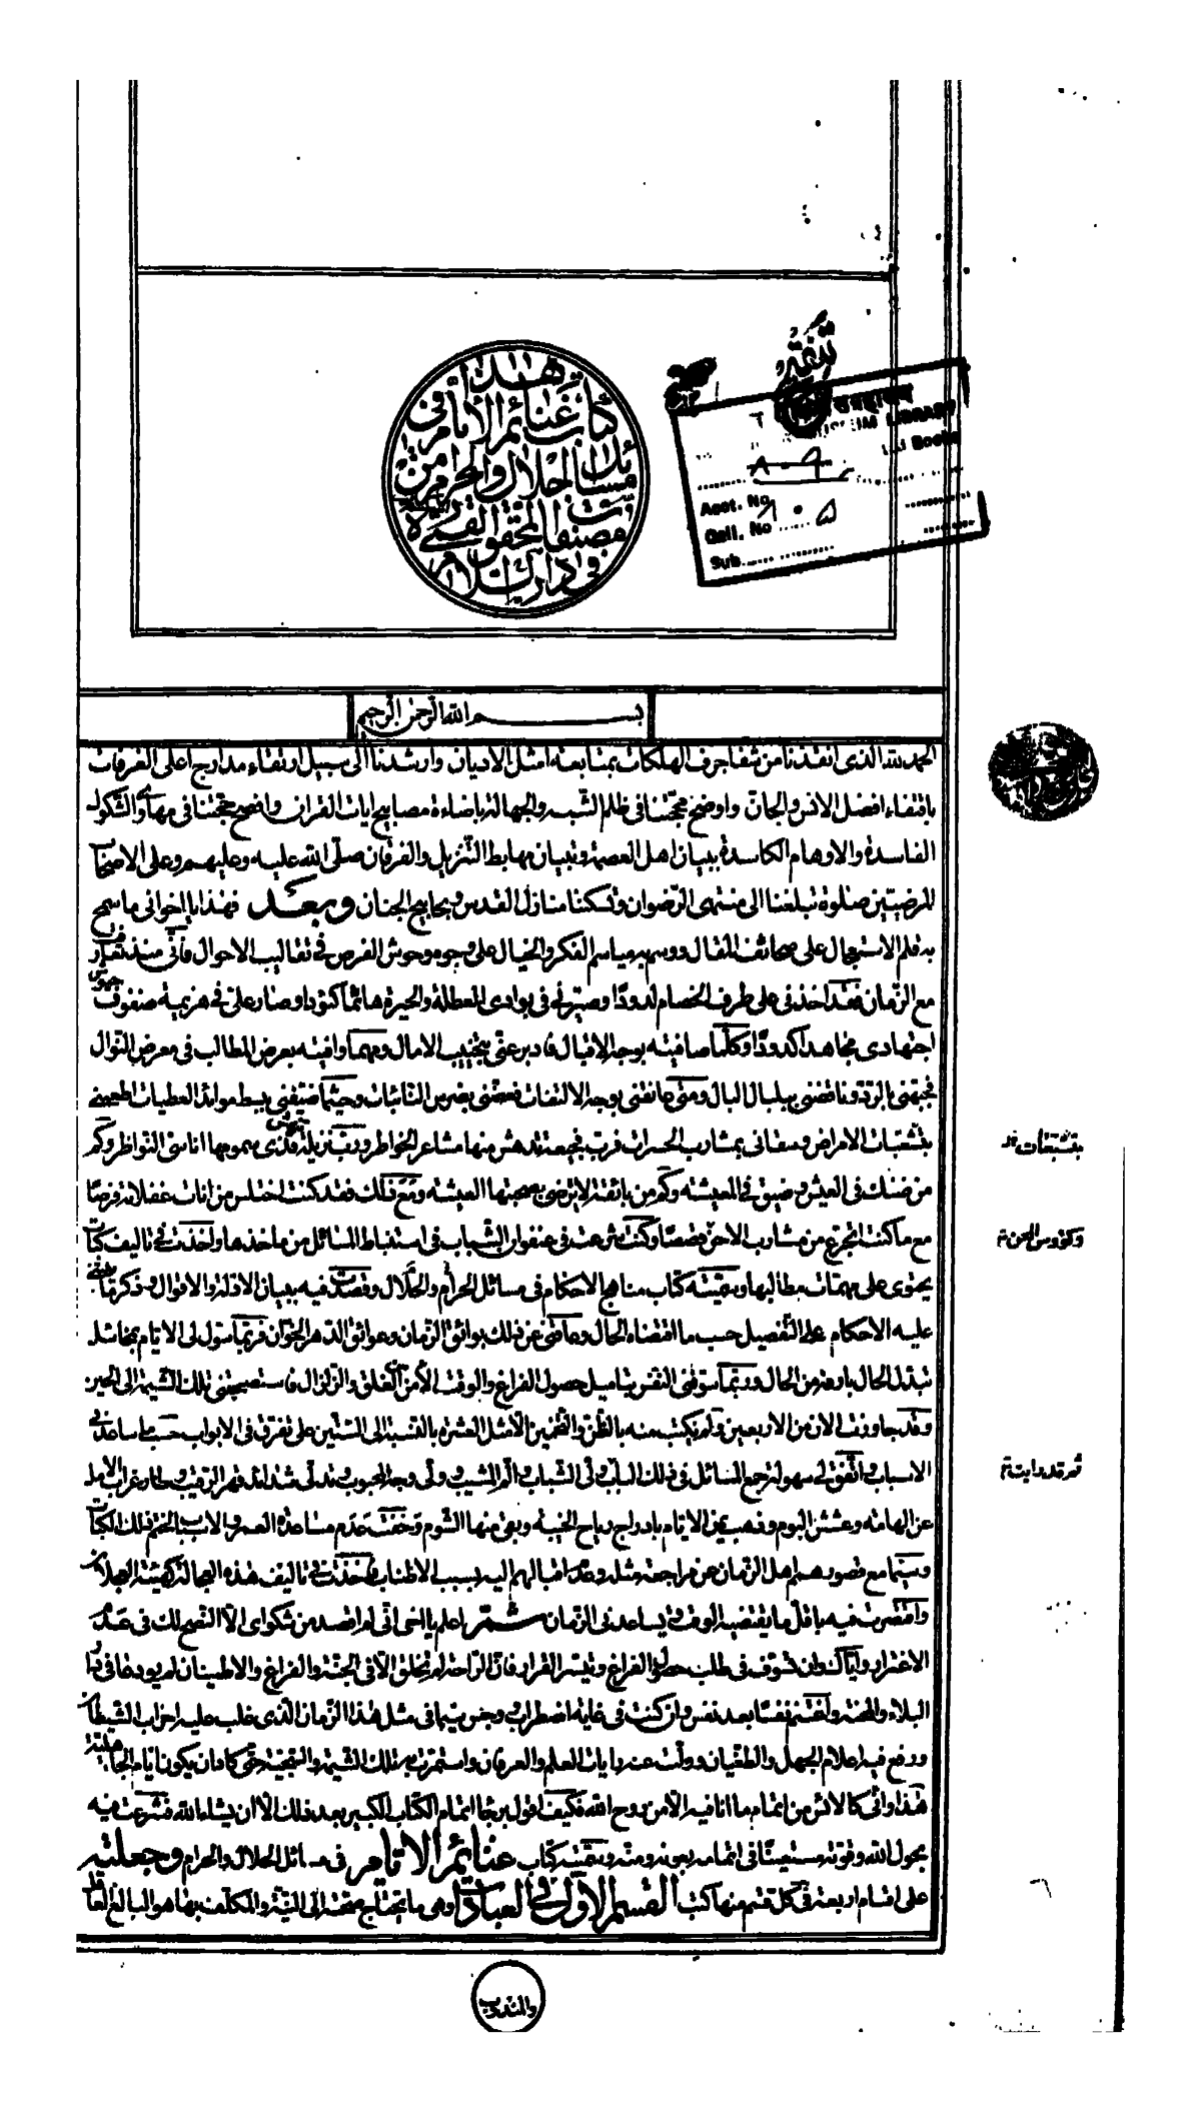 هذا
كتاب غنائم الايام في
مسائل الحلال والحرام من
مصنفات المحقق القمي
في دار السلام
LIBRARY
Books
Acct. No
Call. No
Sub.
بسم الله الرحمن الرحيم
الحمد لله الذى انقذنا من شفا جرف الهلكات بمتابعة امثل الاديان وارشدنا الى سبيل ارتقاء مدارج اعلى الغرفات
باقتفاء افضل الانس والجان واوضح محجتنا فى ظلم الشبه والجهالة باضاءة مصابيح ايات القران وافصح حجتنا فى مهاوى الشكوك
الفاسدة والاوهام الكاسدة ببيان اهل العصمة وتبيان مهابط التنزيل والفرقان صلى الله عليه وعليهم وعلى الاصحاب
المرضيين صلوة تبلغنا الى منتهى الرضوان وتسكننا منازل القدس وبحابيح الجنان وبعد فهذا يا اخوانى ما سمح
به قلم الاستعجال على صحائف المقال ووسم به مياسم الفكر والخيال على وجوه وحوش الفرص فى تقاليب الاحوال فانى منذ
مع الزمان فقد اخذنى على طرف الخصام لدودا وصيرنى فى بوادى العطلة والحيرة هائما كنودا وصار على فى هزيمة صفوف جيوش
اجتهادى مجاهدا كدودا وكلما صافيته بوجه الاقبال فادبر عنى بتخييب الامال ومهما وافيته بعرض المطالب فى معرض النوال
فجبهنى بالرد وناقضنى ببلبال البال ومتى عانقنى بوجه الالتفات فعضنى بضرس النائبات وحيثما ضيفنى ببسط موائد العطيات اطعمنى
الامراض وسقانى بمشارب الحسرات فرب فجيعة تدهش منها مشاعر الخواطر ورب نزيلة تقذى بهمومها اناسى النواظر وكم
من ضنك فى العيش وضيق فى المعيشة وكم من بائقة لا ترضى بصحبتها العيشة ومع ذلك فقد كنت اختلس من انات غفلاته فرصا
مع ما كنت اتجرع من مشارب الاحن غصصا وكنت شرعت فى عنفوان الشباب فى استنباط المسائل من ماخذها واخذت فى تاليف كتاب
يحتوى على مهمات مطالبها وسميته كتاب مناهج الاحكام فى مسائل الحرام والحلال وقصدت فيه بيان الادلة والاقوال وذكر ما يبتنى
عليه الاحكام على التفصيل حسب ما اقتضاه الحال وعاقنى عن ذلك بوائق الزمان وعوائق الدهر الخوان فربما سول لى الايام بمخائل
تبدل الحال باوفر من الحال وربما سوفنى النفس بتاميل حصول الفراغ والوقت الآمن من القلق والزلزال فاستصحبتنى تلك الشيمة الى الحين
وقد جاوزت الان من الاربعين ولم يكتب منه بالظن والتخمين الا مثل العشر بالنسبة الى الستين على تفرق فى الابواب حسبما ساعدنى
الاسباب واتفق لى سهولة جمع المسائل فى ذلك الباب ولى الشباب والم المشيب وولى وجه المحبوب
عن الهامة وعشش البوم وذهب يمن الايام بادراج رياح الخيبة وبقى منها الشوم وخفت عدم مساعدة العمر والاسباب لختم ذلك الكتاب
وسيما مع قصور همم اهل الزمان عن مراجعة مثله وعدم اقبالهم اليه بسبب الاطناب فاخذت فى تاليف هذه العجالة كهيئة العجلان
واقتصرت فيه باقل ما يقتضيه الوقت ويساعدنى الزمان ثم اعلم يا اخى انى لم اقصد من شكواى الا النصح لك فى عدم
الاغترار واياك وان تسوف فى طلب حصول الفراغ وتيسر القرار فان الراحة لم تخلق الا فى الجنة والفراغ والاطمينان لم يودعا فى دار
البلاء والمحنة ولغتنم نفسا بعد نفس وان كنت فى غاية اضطراب وجس سيما فى مثل هذا الزمان الذى غلب عليه احزاب الشيطان
ورفع فيه اعلام الجهل والطغيان وولت عنه رايات العلم والعرفان واستمرت به تلك الشيمة والسجية حتى كاد ان يكون ايام الجاهلية
هذا وانى كالائس من اتمام ما انا فيه الا من روح الله فكيف اقول برجاء اتمام الكتاب الكبير بعد ذلك الا ان يشاء الله فشرعت فيه
بحول الله وقوته مستعينا فى اتمامه بعونه ومنه وسميته كتاب غنائم الايام فى مسائل الحلال والحرام وجعلته
على اقسام اربعة فى كل قسم منها كتب القسم الاول فى العبادات وهى ما يحتاج صحته الى النية والمكلف بها هو البالغ العاقل
وكؤوس المحن م
ثم قد رايت م
والمندوب